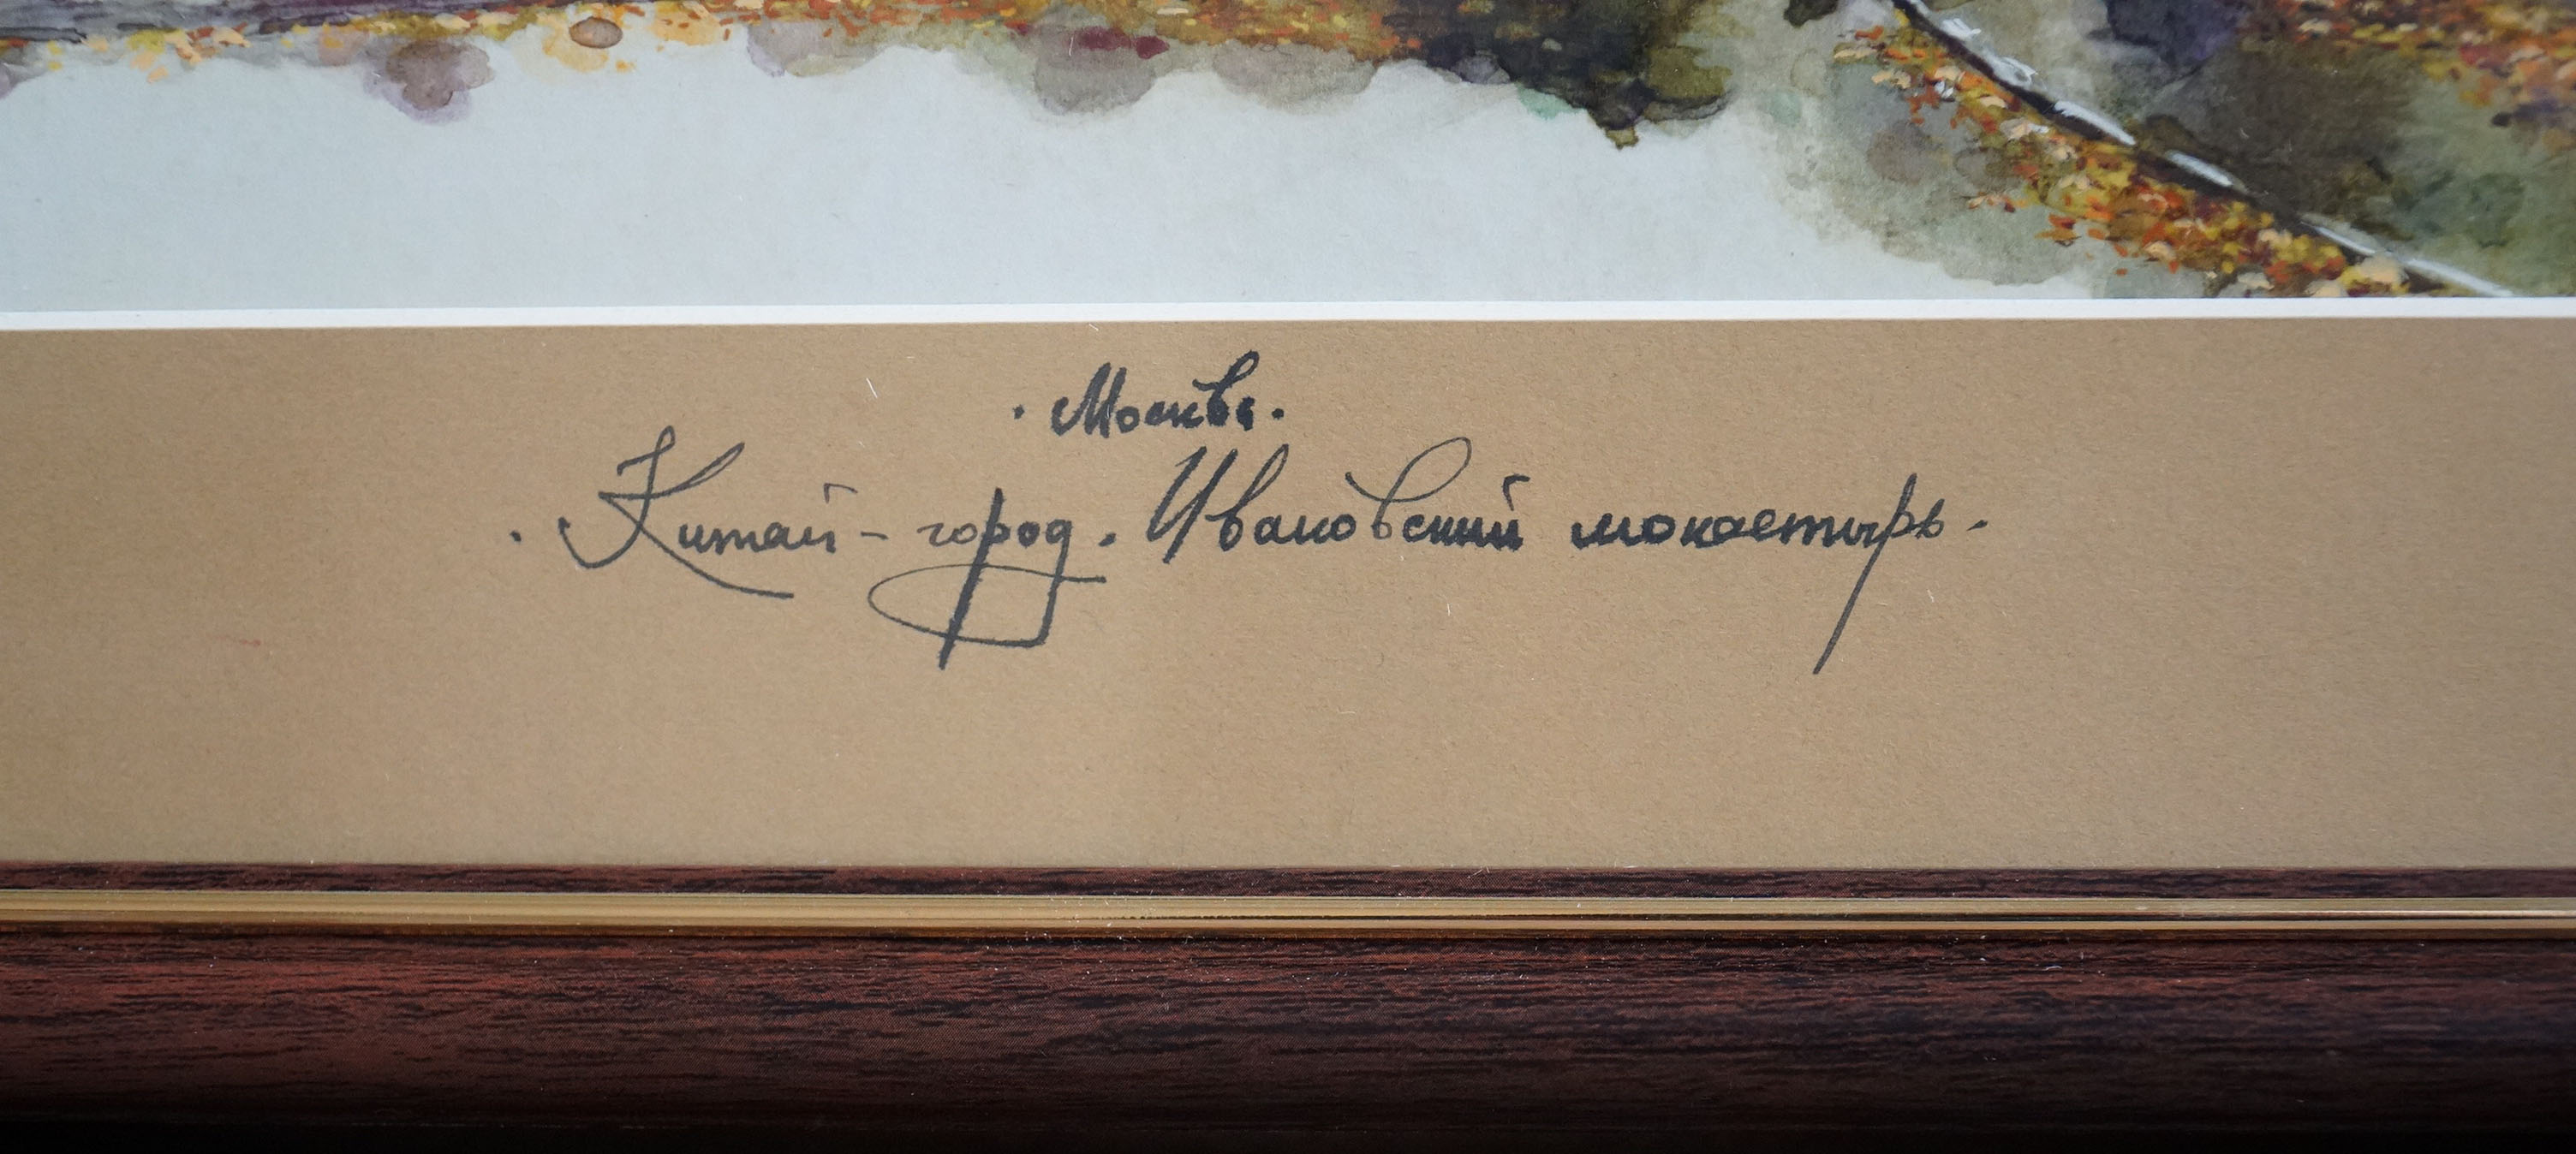 . Москва.
. Китай-город. Ивановский монастырь.